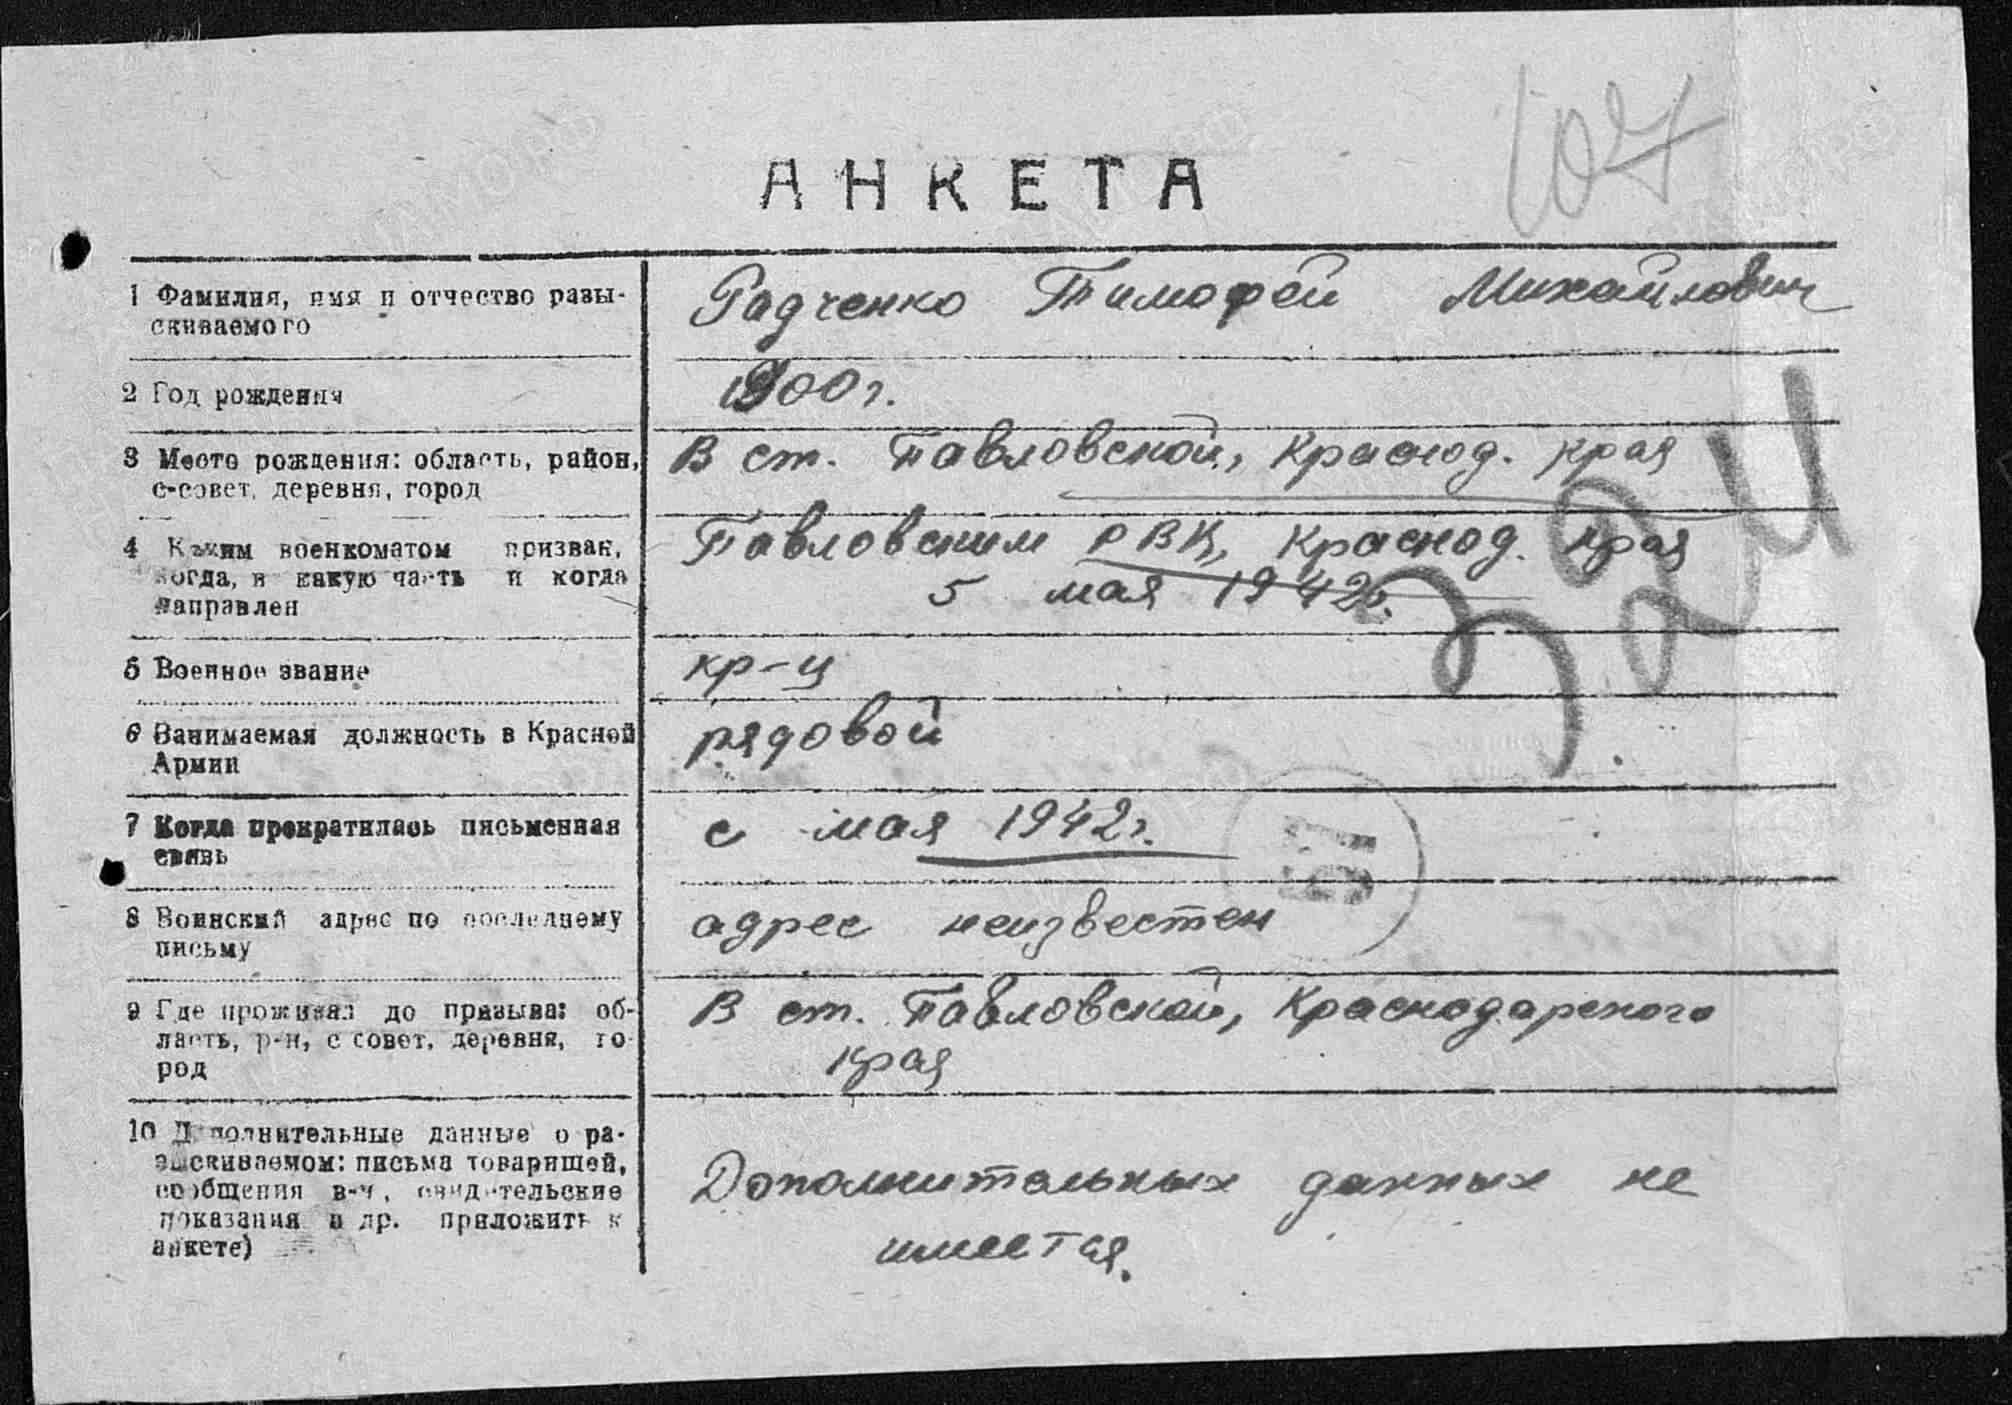 107
АНКЕТА
1 Фамилия, имя и отчество разы-
скиваемого
Радченко Тимофей Михайлович
2 Год рождения
1900г.
3 Место рождения: область, район,
с-совет, деревня, город
В ст. Павловской, Краснод. края
4 Каким военкоматом призван,
когда, в какую часть и когда
направлен
Павловским РВК, Краснод. края
5 мая 1942г.
5 Военное звание
кр-ц
6 Занимаемая должность в Красной
Армии
рядовой
7 Когда прекратилась письменная
связь
с мая 1942г.
8 Воинский адрес по последнему
письму
адрес неизвестен
9 Где проживал до призыва: об-
ласть, р-н, с совет, деревня, го-
род
В ст. Павловской, Краснодарского
края
10 Дополнительные данные о ра-
зыскиваемом: письма товарищей,
сообщения в-ч, свидетельские
показания и др. приложить к
анкете)
Дополнительных данных не
имеется.